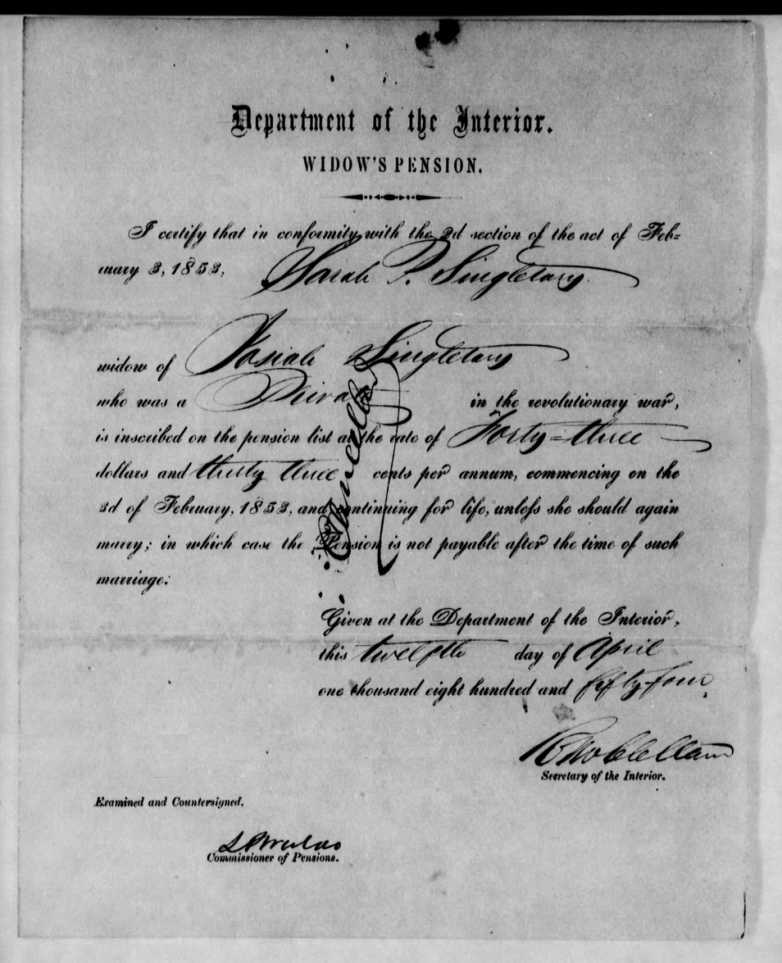 Department of the Interior.
WIDOW'S PENSION.
I certify that in conformity with the 2d section of the act of Feb-
ruary 3, 1853, Sarah P. Singletary
widow of Josiah Singletary
who was a Private in the revolutionary war,
is inscribed on the pension list at the rate of Forty-three
dollars and thirty three cents per annum, commencing on the
3d of February, 1853, and continuing for life, unless she should again
marry; in which case the Pension is not payable after the time of such
marriage.
Cancelled
Given at the Department of the Interior,
this twelfth day of April
one thousand eight hundred and fifty-four.
R McClelland
Secretary of the Interior.
Examined and Countersigned.
Commissioner of Pensions.